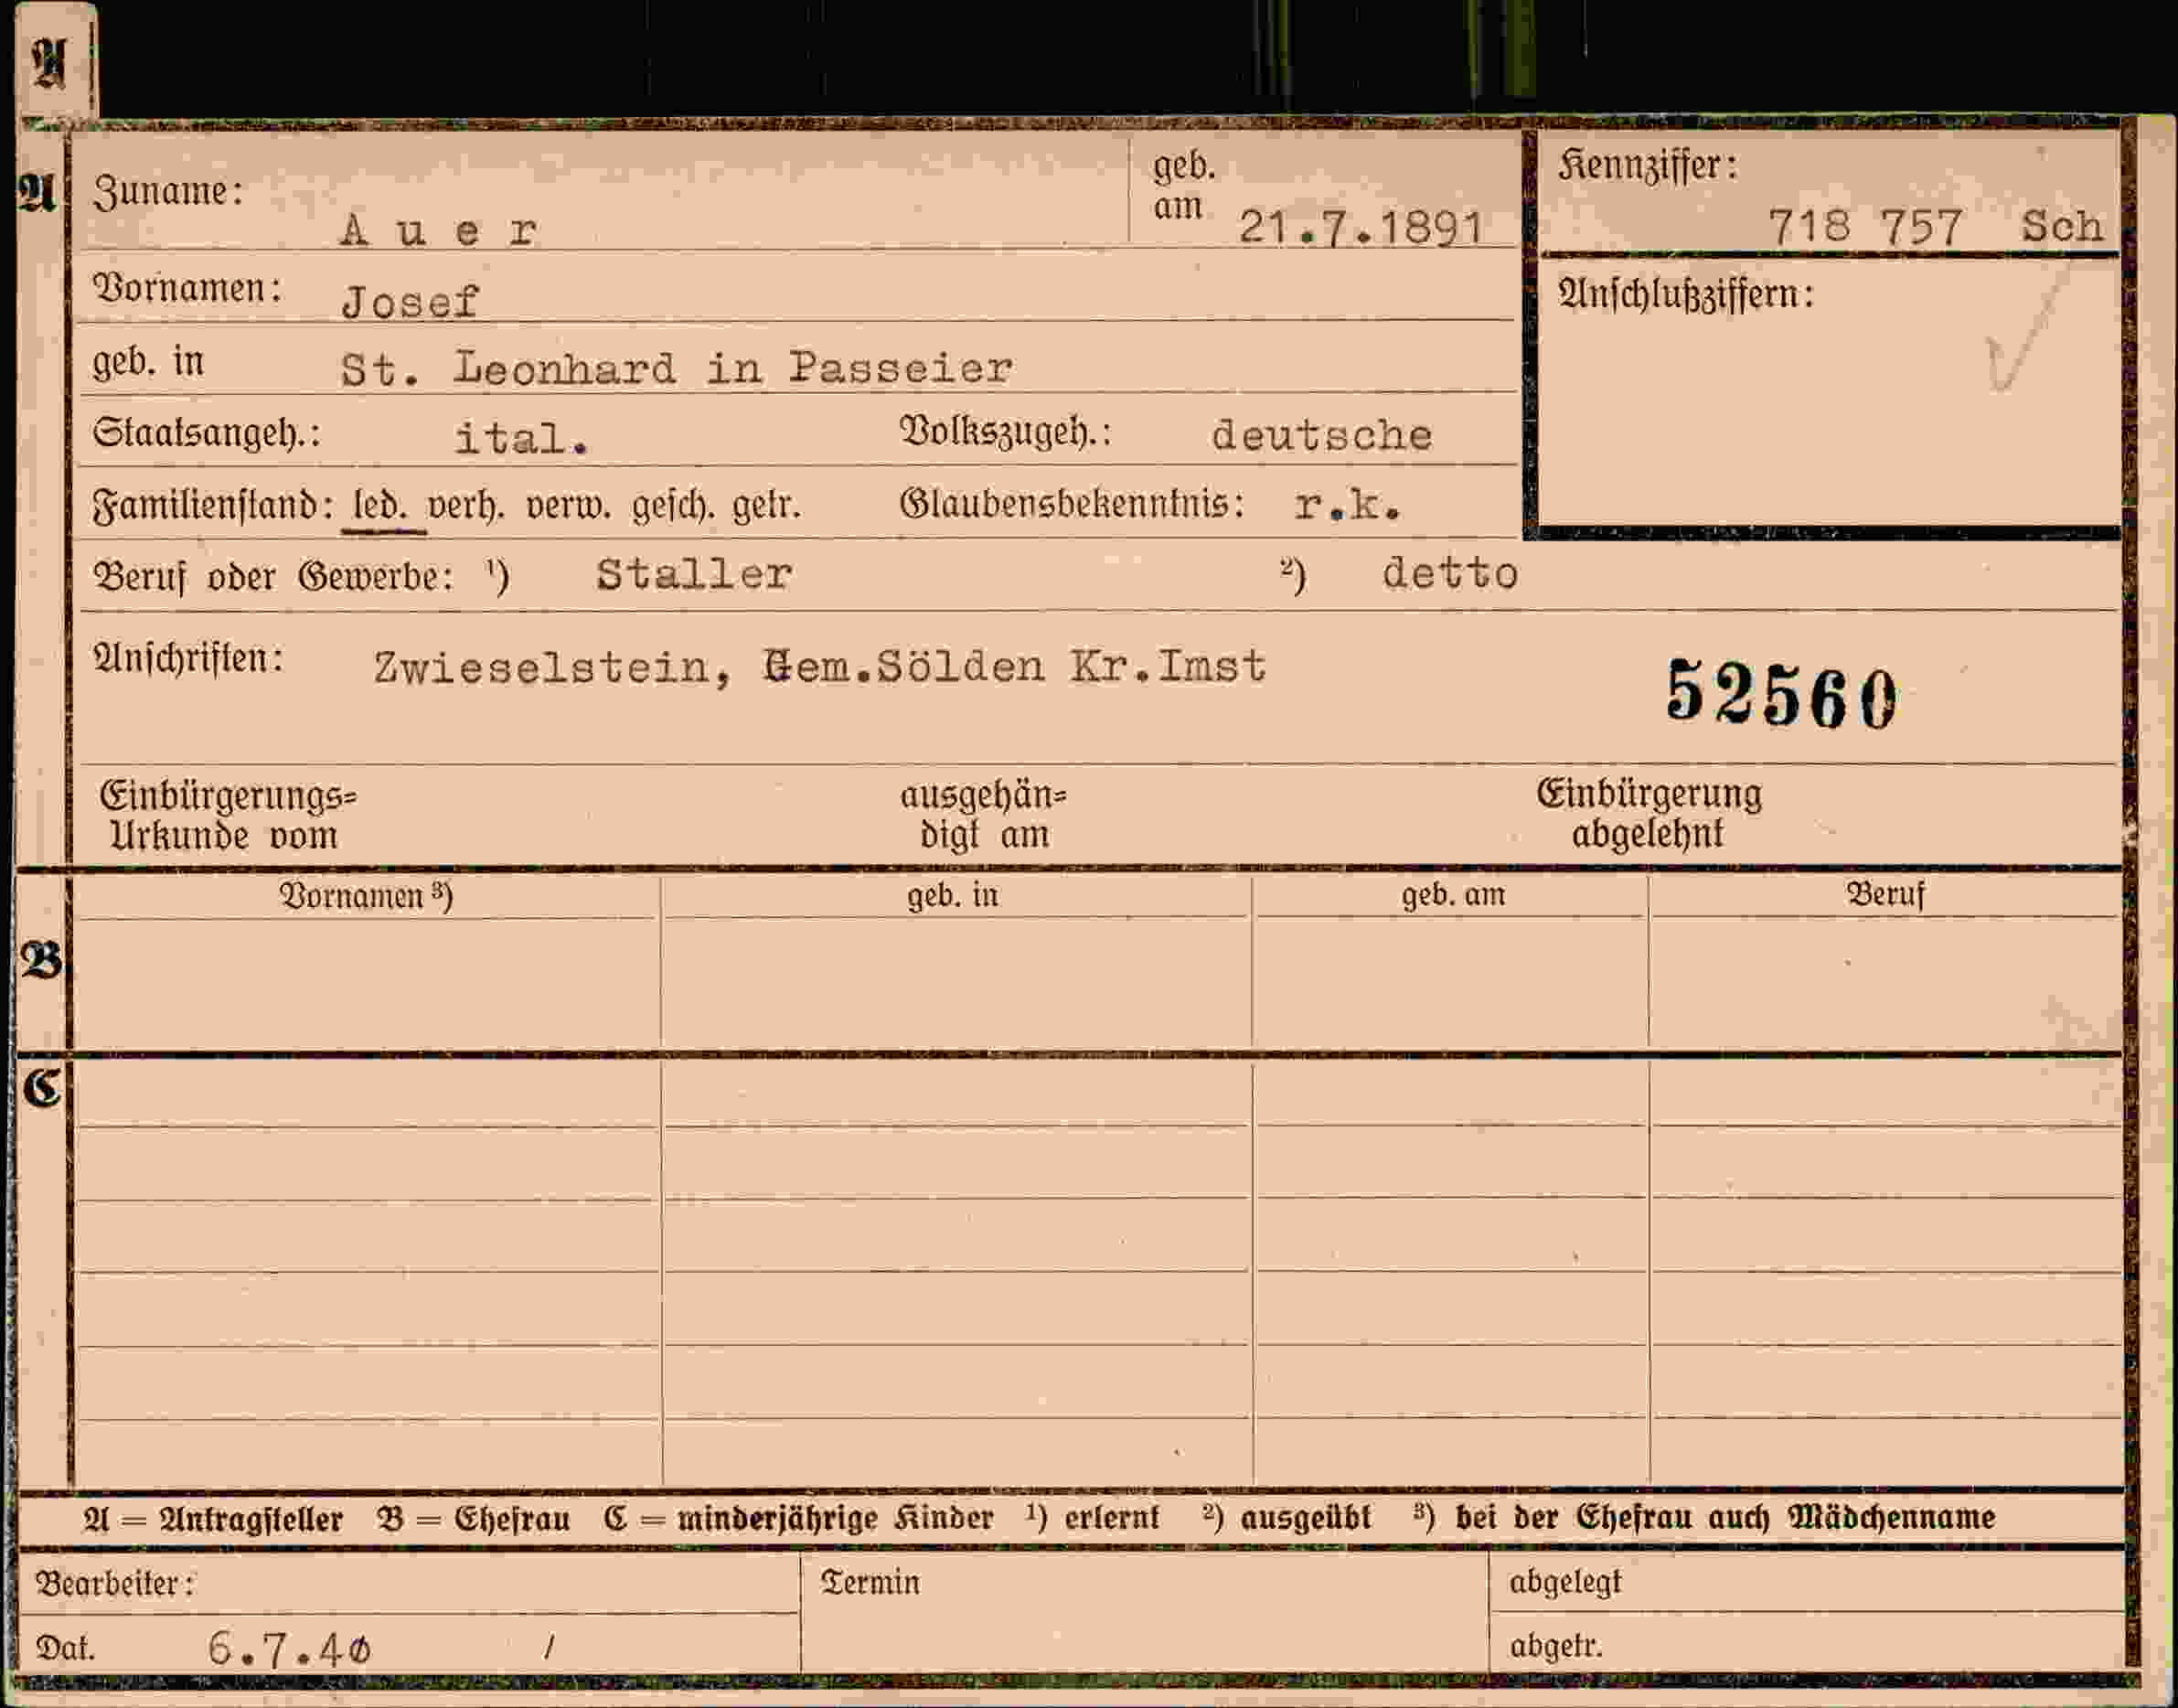 A
A
Zuname: Auer
geb. am 21.7.1891
Kennziffer: 718 757 Sch
Vornamen: Josef
Anschlußziffern:
geb. in St. Leonhard in Passeier
Staatsangeh.: ital. Volkszugeh.: deutsche
Familienstand: led. verh. verw. gesch. getr. Glaubensbekenntnis: r.k.
Beruf oder Gewerbe: ¹) Staller ²) detto
Anschriften: Zwieselstein, Gem.Sölden Kr.Imst
52560
Einbürgerungs=
Urkunde vom
ausgehän=
digt am
Einbürgerung
abgelehnt
Vornamen ³) geb. in geb. am Beruf
B
C
A = Antragsteller B = Ehefrau C = minderjährige Kinder ¹) erlernt ²) ausgeübt ³) bei der Ehefrau auch Mädchenname
Bearbeiter: Termin abgelegt
Dat. 6.7.40 / abgetr.